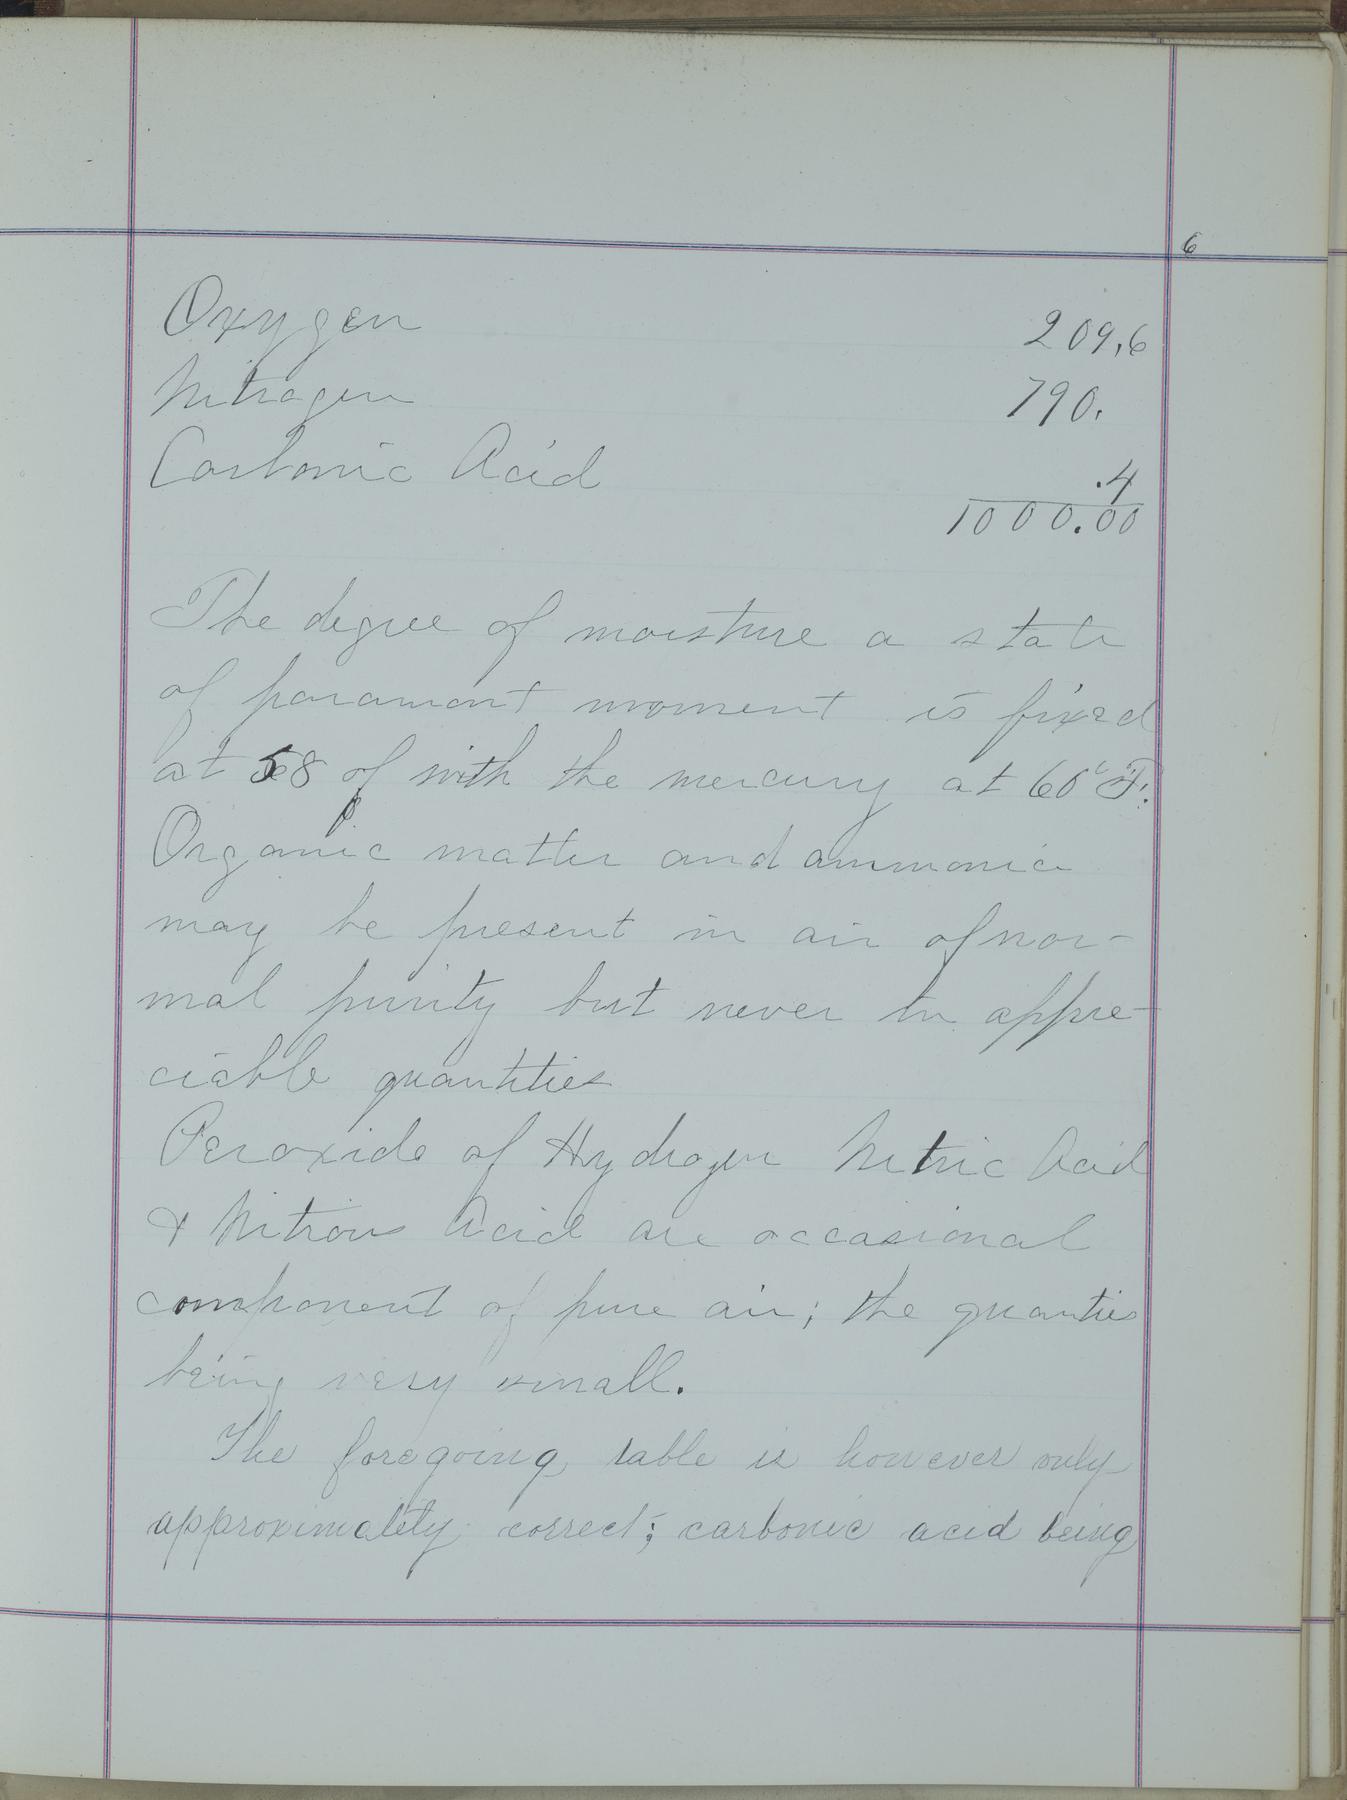 6
Oxygen 209.6
Nitrogen 790.
Carbonic Acid .4
1000.00
The degree of moisture a state
of paramont moment is fixed
at 58 of with the mercury at 60° F.
Organic matter and ammonia
may be present in air of nor-
mal purity but never in appre-
ciable quantities
Peroxide of Hydrogen Nitric Acid
& Nitrous Acid are occasional
component of pure air; the quanties
being very small.
The foregoing table is however only
approximately correct; carbonic acid being